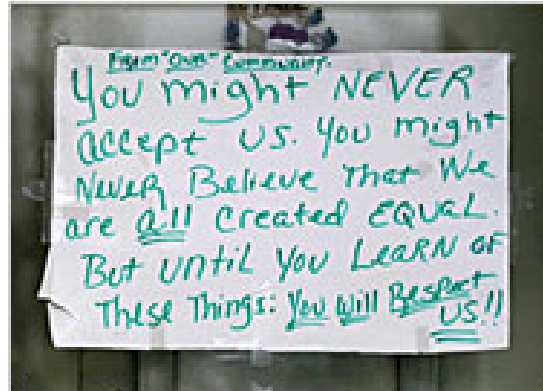 From "Our" Community.
You might NEVER
accept us. You might
Never Believe That We
are all created EQUAL.
But until you Learn of
These Things: You will Respect
US!!